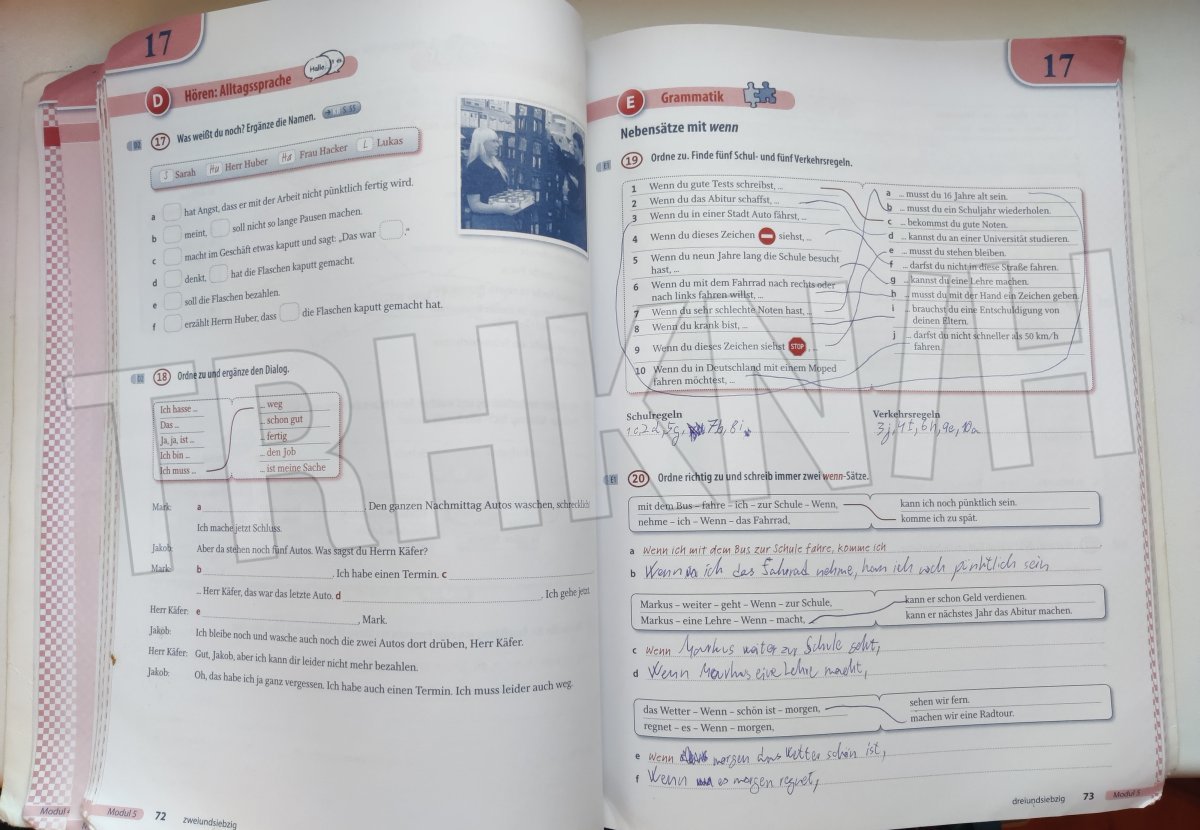 17
D Hören: Alltagssprache
Hallo.
D2 17 Was weißt du noch? Ergänze die Namen.
S. 55
J Sarah Hu Herr Huber Ha Frau Hacker L Lukas
a hat Angst, dass er mit der Arbeit nicht pünktlich fertig wird.
b meint, soll nicht so lange Pausen machen.
c macht im Geschäft etwas kaputt und sagt: „Das war .“
d denkt, hat die Flaschen kaputt gemacht.
e soll die Flaschen bezahlen.
f erzählt Herrn Huber, dass die Flaschen kaputt gemacht hat.
D2 18 Ordne zu und ergänze den Dialog.
Ich hasse ... ... weg
Das ... ... schon gut
Ja, ja, ist ... ... fertig
Ich bin ... ... den Job
Ich muss ... ... ist meine Sache
Mark: a , Den ganzen Nachmittag Autos waschen, schrecklich
Ich mache jetzt Schluss.
Jakob: Aber da stehen noch fünf Autos. Was sagst du Herrn Käfer?
Mark: b , Ich habe einen Termin. c
... Herr Käfer, das war das letzte Auto. d . Ich gehe jetzt
Herr Käfer: e , Mark.
Jakob: Ich bleibe noch und wasche auch noch die zwei Autos dort drüben, Herr Käfer.
Herr Käfer: Gut, Jakob, aber ich kann dir leider nicht mehr bezahlen.
Jakob: Oh, das habe ich ja ganz vergessen. Ich habe auch einen Termin. Ich muss leider auch weg.
Modul 5 72 zweiundsiebzig
17
E Grammatik
Nebensätze mit wenn
E1 19 Ordne zu. Finde fünf Schul- und fünf Verkehrsregeln.
1 Wenn du gute Tests schreibst, ...
2 Wenn du das Abitur schaffst, ...
3 Wenn du in einer Stadt Auto fährst, ...
4 Wenn du dieses Zeichen siehst, ...
5 Wenn du neun Jahre lang die Schule besucht
hast, ...
6 Wenn du mit dem Fahrrad nach rechts oder
nach links fahren willst, ...
7 Wenn du sehr schlechte Noten hast, ...
8 Wenn du krank bist, ...
9 Wenn du dieses Zeichen siehst STOP , ...
10 Wenn du in Deutschland mit einem Moped
fahren möchtest, ...
a ... musst du 16 Jahre alt sein.
b ... musst du ein Schuljahr wiederholen.
c ... bekommst du gute Noten.
d ... kannst du an einer Universität studieren.
e ... musst du stehen bleiben.
f ... darfst du nicht in diese Straße fahren.
g ... kannst du eine Lehre machen.
h ... musst du mit der Hand ein Zeichen geben.
i ... brauchst du eine Entschuldigung von
deinen Eltern.
j ... darfst du nicht schneller als 50 km/h
fahren.
Schulregeln
1c, 2d, 5g, 7b, 8i
Verkehrsregeln
3j, 4f, 6h, 9e, 10a
E1 20 Ordne richtig zu und schreib immer zwei wenn-Sätze.
mit dem Bus – fahre – ich – zur Schule – Wenn, kann ich noch pünktlich sein.
nehme – ich – Wenn – das Fahrrad, komme ich zu spät.
a Wenn ich mit dem Bus zur Schule fahre, komme ich
b Wenn ich das Fahrrad nehme, kann ich noch pünktlich sein
Markus – weiter – geht – Wenn – zur Schule, kann er schon Geld verdienen.
Markus – eine Lehre – Wenn – macht, kann er nächstes Jahr das Abitur machen.
c Wenn Markus weiter zur Schule geht,
d Wenn Markus eine Lehre macht,
das Wetter – Wenn – schön ist – morgen, sehen wir fern.
regnet – es – Wenn – morgen, machen wir eine Radtour.
e Wenn morgen das Wetter schön ist,
f Wenn es morgen regnet,
dreiundsiebzig 73 Modul 5
TRHKNVH